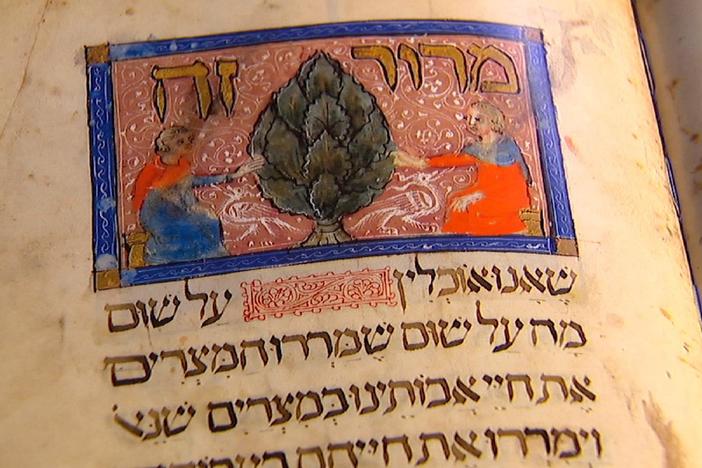 מרור זה
שאנו אוכלין על שום
מה על שום שמררו המצרים
את חיי אבותינו במצרים שנא
וימררו את חייהם